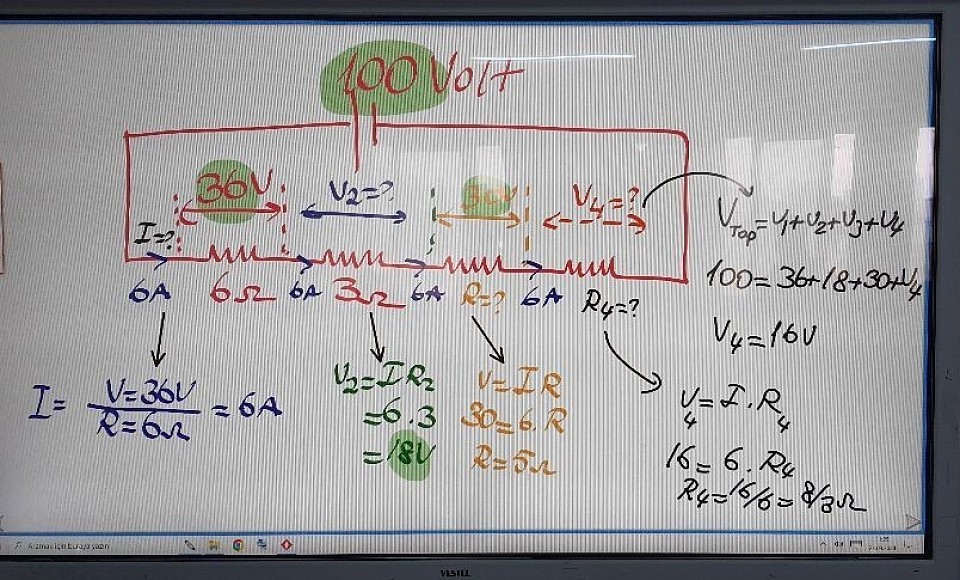 100 Volt
36V V2=? 30V V4=?
I=?
6A 6Ω 6A 3Ω 6A R=? 6A R4=?
VTop=V1+V2+V3+V4
100=36+18+30+V4
V4=16V
I= V=36V / R=6Ω = 6A
V2=IR2
=6.3
=18V
V=IR
30=6.R
R=5Ω
V4=I.R4
16=6.R4
R4=16/6=8/3Ω
Aramak için buraya yazın
VESTEL